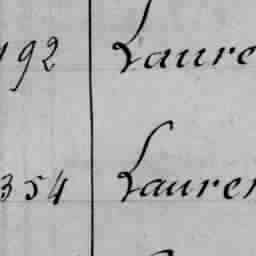 192 Laure
354 Lauren